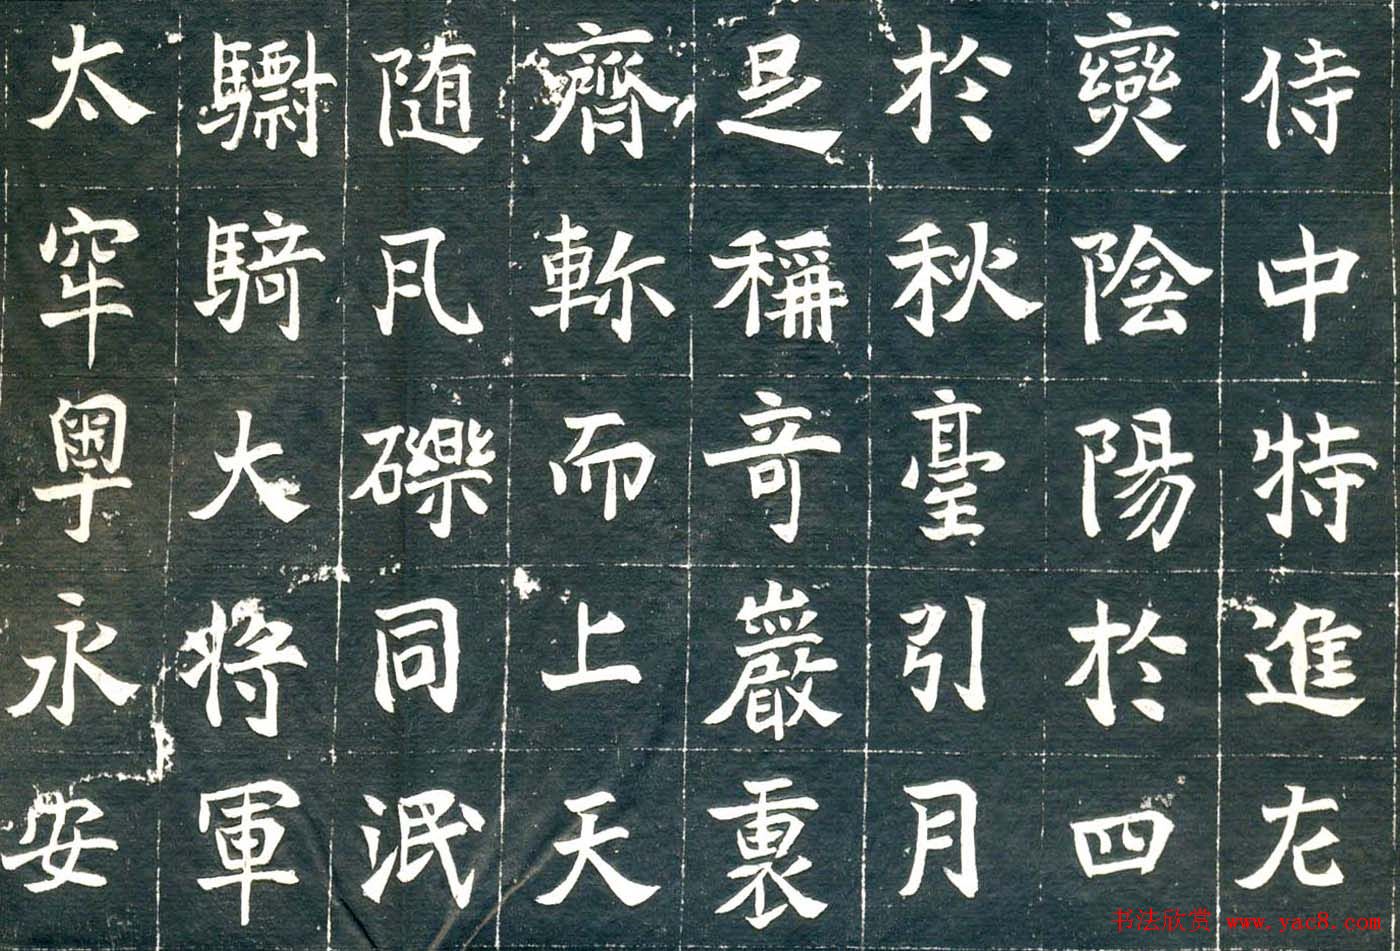 侍中特進
燮陰陽於四
於秋臺引月
是稱竒巖裏
齊軫而上天
随凡礫同泯
驃騎大将軍
太牢粤永安
书法欣赏 www.yac8.com